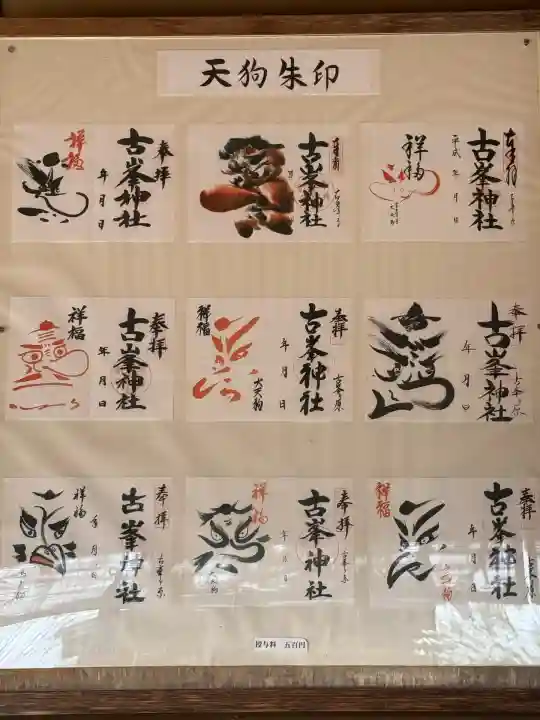 天狗朱印
奉拝
古峯神社
年 月 日
祥福
古峯神社
奉拝
古峯神社
平成 年 月 日
祥福
奉拝
古峯神社
年 月 日
祥福
奉拝
古峯神社
年 月 日
祥福
大天狗
奉拝
古峯神社
年 月 日
奉拝
古峯神社
年 月 日
祥福
奉拝
古峯神社
年 月 日
祥福
奉拝
古峯神社
年 月 日
祥福
授与料 五百円